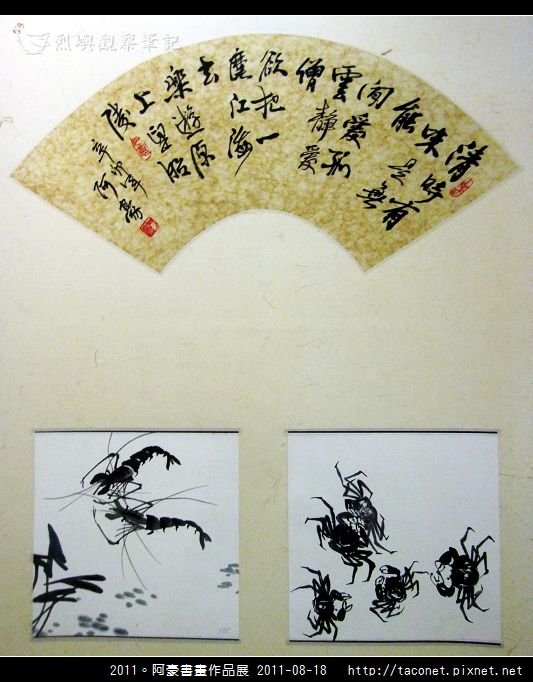 烈嶼觀察筆記
清時有
味是無
能
閑愛孤
雲靜愛
僧
欲把一
麾江海
去
樂遊原
上望昭
陵
辛卯年阿豪
2011。阿豪書畫作品展 2011-08-18 http://taconet.pixnet.net